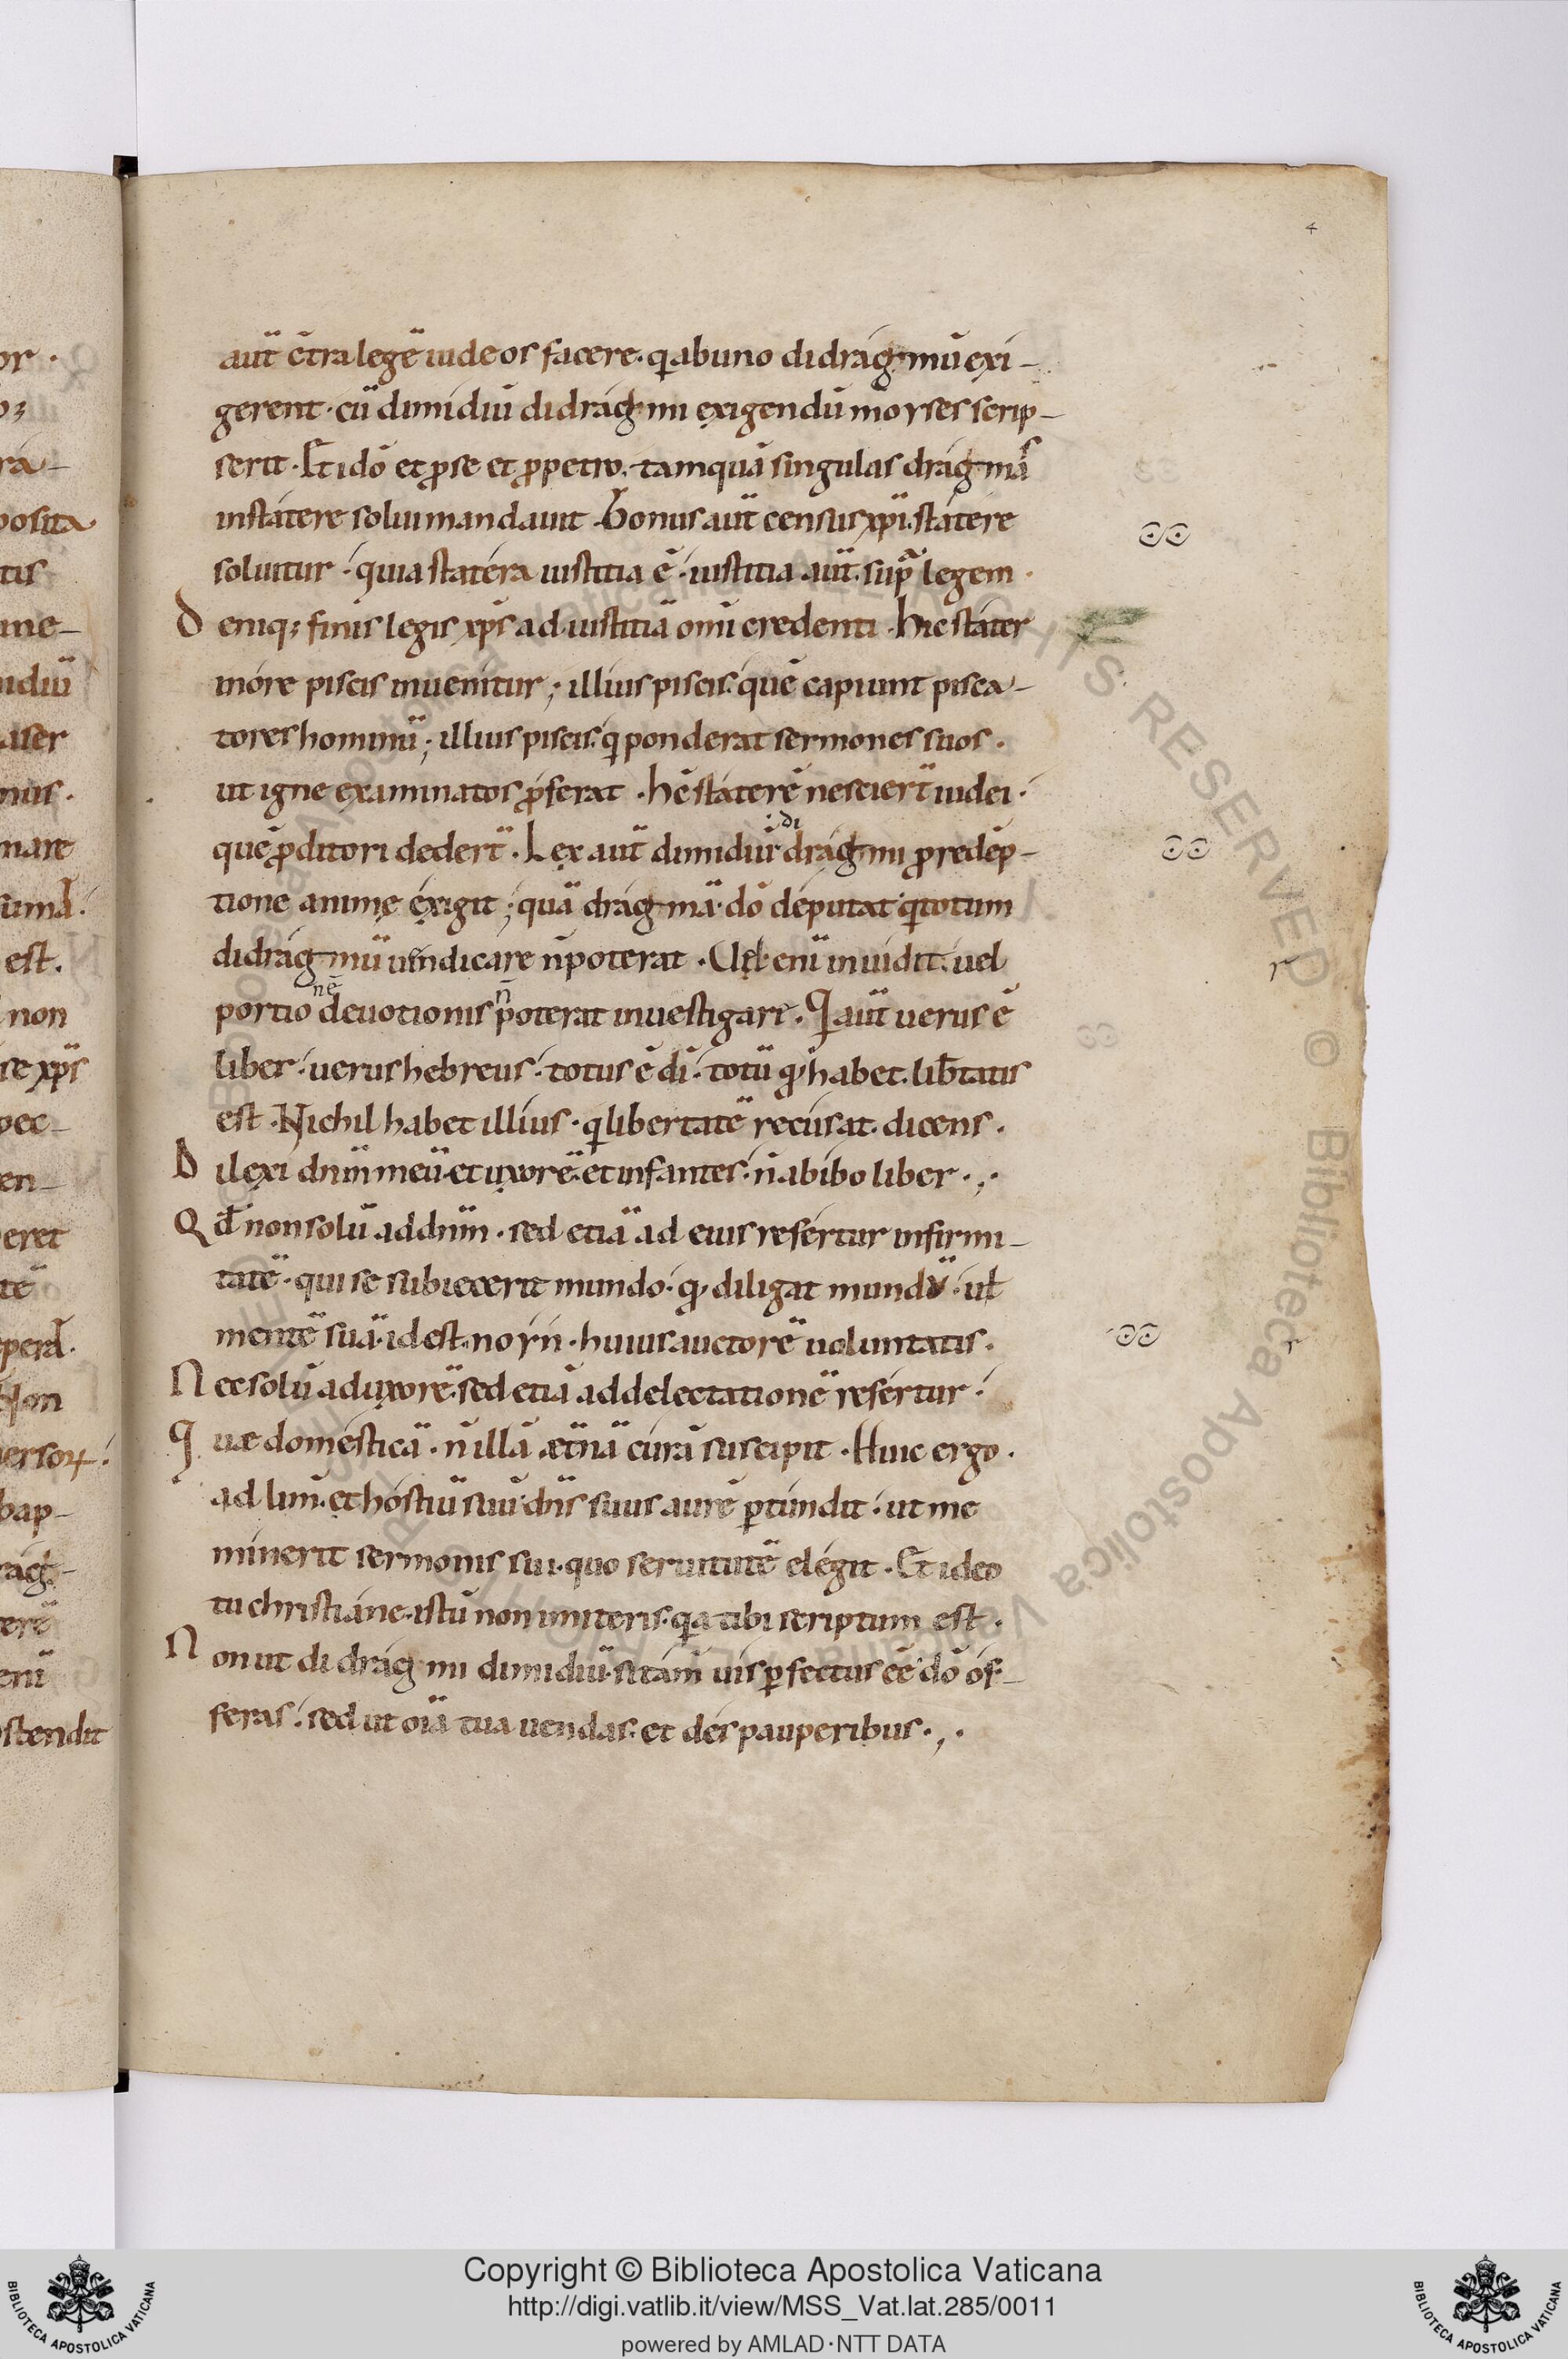 4
aut̄ c̄tra legē iudeos facere· q̨ ab uno didrag mū exi-
gerent· cū dimidiū didrag mi exigendū moyses scrip-
serit· Et idō et ꝓse et ꝓpetro· tamquā singulas drag mas
in statere solui mandauit· Bonus aut̄ census xp̄i· statere
soluitur· quia statera iustitia ē· iustitia aut̄ sup̄ legem·
Deniq; finis legis xp̄s ad iustitiā om̄i credenti· Hic stater
in ore piscis inuenitur; illius piscis· quē capiunt pisca-
tores hominū; illius piscis· q̨ ponderat sermones suos·
ut igne examinatos ꝓferat· hc̄ staterē nescier̄t iudei·
quē ꝓditori deder̄t· Lex aut̄ dimidiū di drag mi ꝓ redēp-
tione animę exigit; quā drag mā dō deputat· q̨ totum
didrag mū uendicare n̄ poterat· Vel eni inuidit· uel
portionē deuotionis n̄ poterat inuestigare· Q̨ aut̄ uerus ē
liber· uerus hebreus· totus ē dī· totū qđ habet· lib̄tatis
est· Nichil habet illius· q̨ libertatē recusat· dicens·
Dilexi dn̄m meū· et uxorē· et infantes· n̄ abibo liber·
Qđ non solū ad dn̄m· sed etiā ad eius refertur infirmi-
tatē· qui se subiecerit mundo· qđ diligat mundū· ul̄
mentē suā· id est noyn· huius auctorē uoluntatis·
Nec solū ad uxorē· sed etiā ad delectationē refertur·
Quæ domesticā· n̄ illā æt̄nā curā suscipit· Huic ergo·
ad lim̄· et hostiū suū dn̄s suus aurē ꝑtundit· ut me
minerit sermonis sui· quo seruitutē elegit· Et ideo
tu christiane· istū non imiteris· q̨a tibi scriptum est·
Non ut di drag mi dimidiū· si tam̄ uis ꝑfectus ēē dō of-
feras· sed ut oīa tua uendas· et des pauperibus·
or·
rā-
posita
tis
me-
idiū
aser
nus·
mare
sumā·
est.
non
se xp̄s
pec-
en-
eret
tē
Non
bap-
rag-
erē
enī
stendit
ALL RIGHTS RESERVED © Biblioteca Apostolica Vaticana
Copyright © Biblioteca Apostolica Vaticana
http://digi.vatlib.it/view/MSS_Vat.lat.285/0011
powered by AMLAD·NTT DATA
BIBLIOTECA APOSTOLICA VATICANA
BIBLIOTECA APOSTOLICA VATICANA